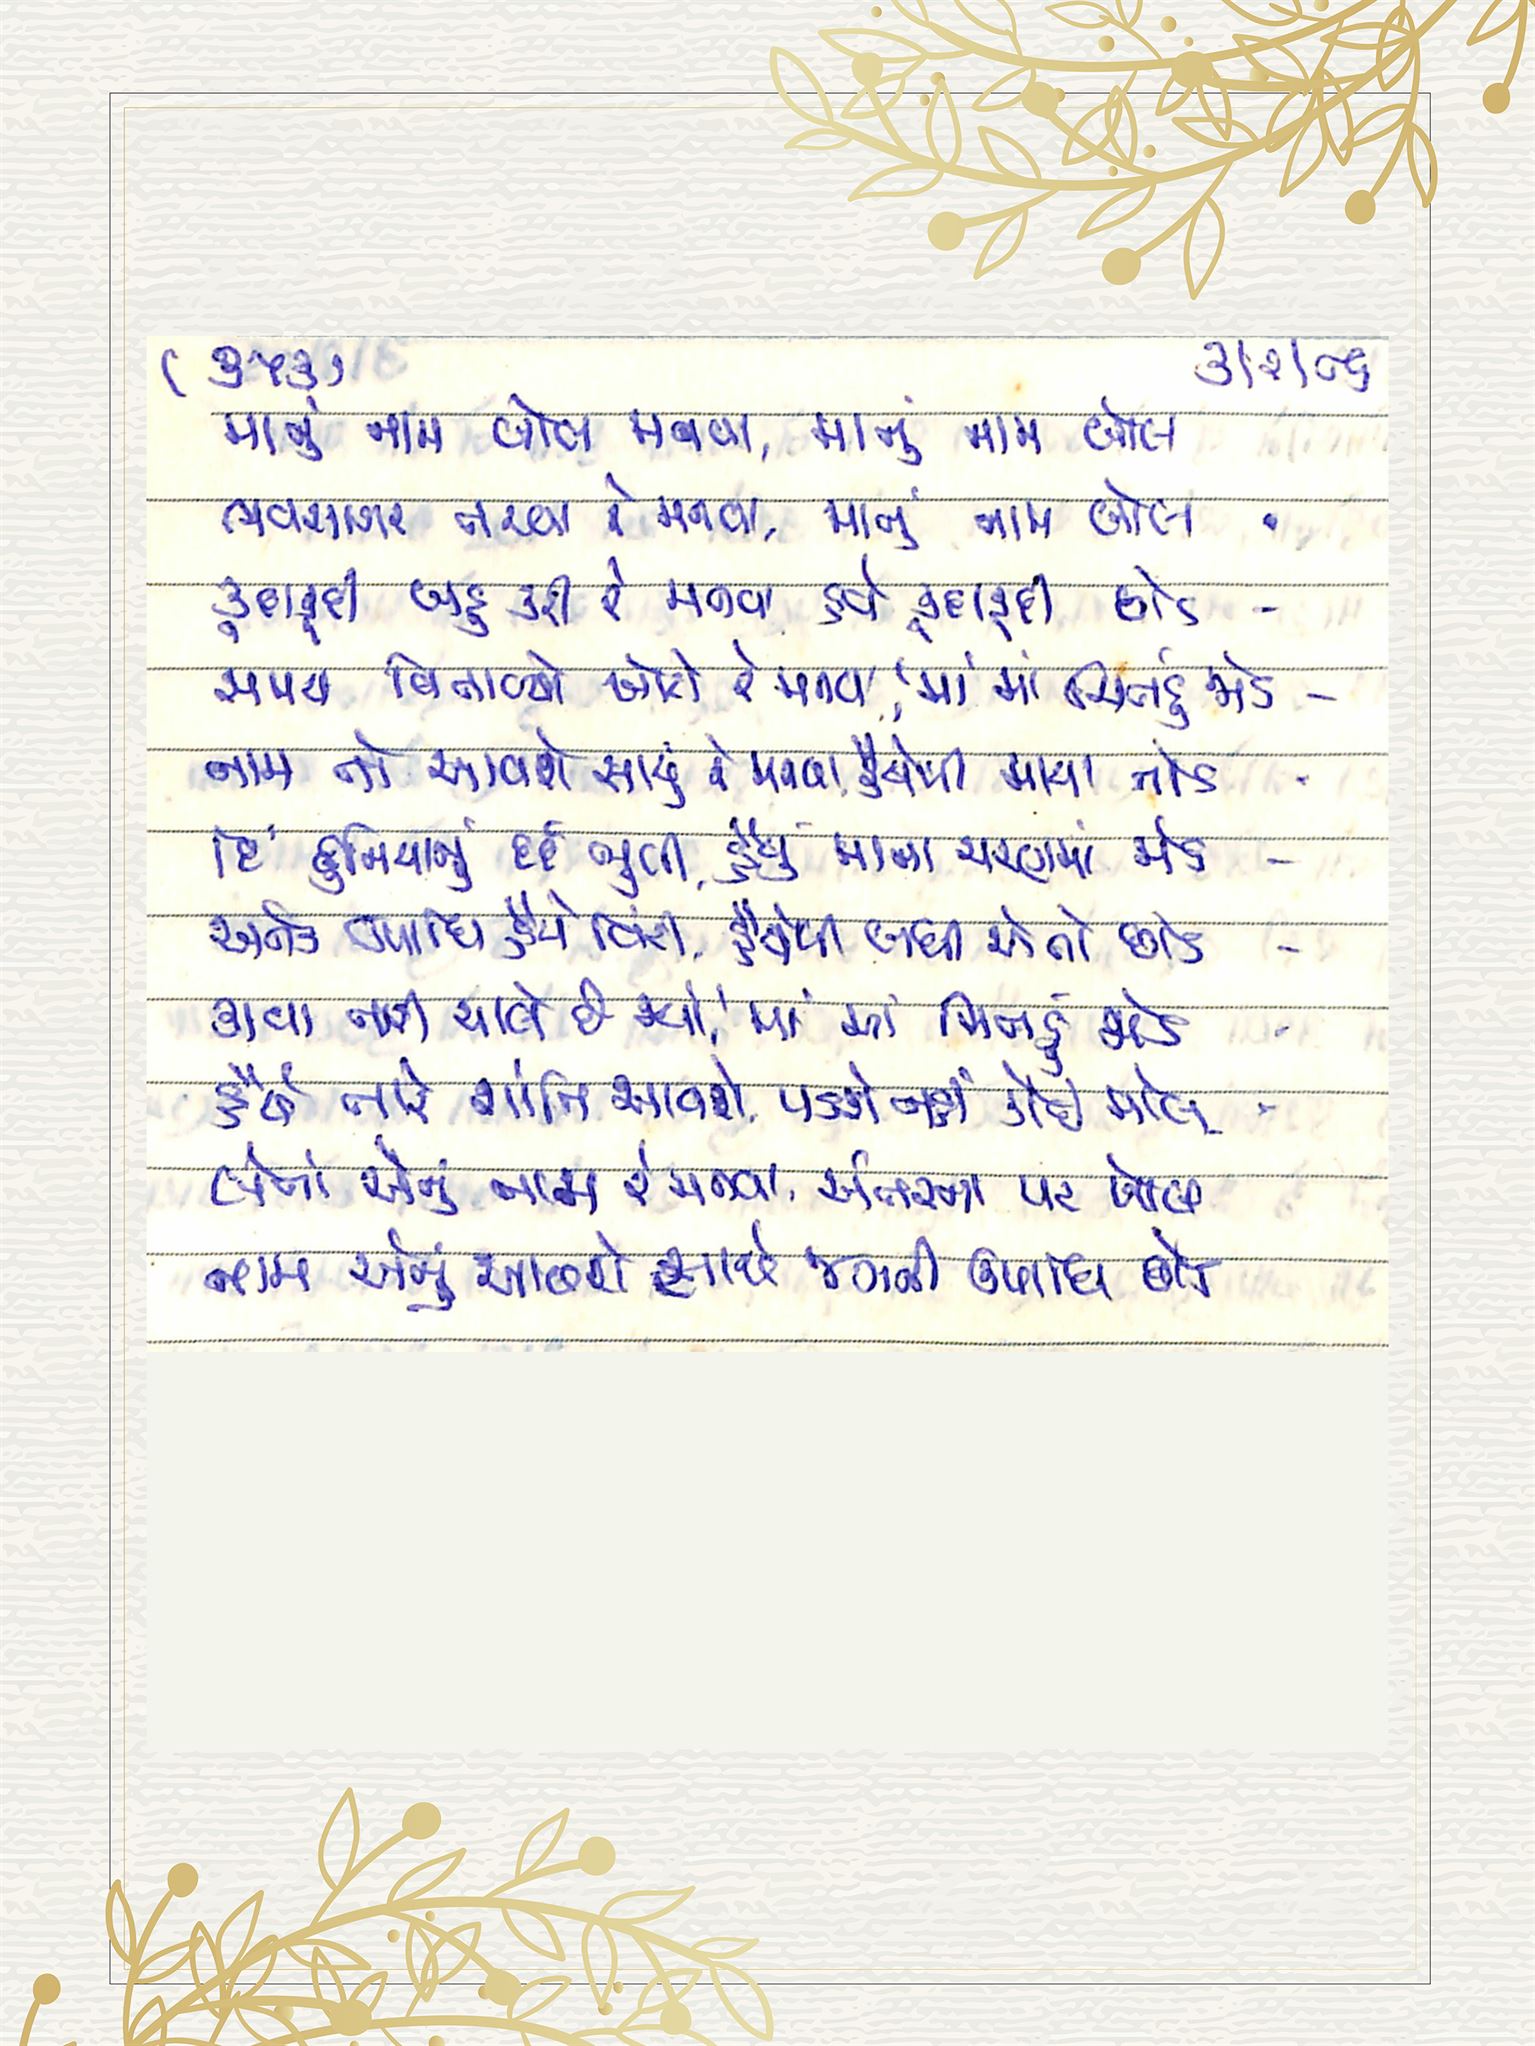 (૩૫૩) ૩/૨/૮૬
માનું નામ બોલ મનવા, માનું નામ બોલ
ભવસાગર તરવા રે મનવા, માનું નામ બોલ
કૂદાકૂદી બહુ કરી રે મનવા, હવે કૂદાકૂદી છોડ -
સમય વિતાવ્યો ખોટો રે મનવા, 'માં' માં ચિત્તડું જોડ -
નામ તો આવશે સાચું રે મનવા, હૈયેથી માયા તોડ -
આ દુનિયાનું દર્દ ભુલી, હૈયું માના ચરણમાં જોડ -
અનેક ઉપાધિ હૈયે વિંટી, હૈયેથી બધી એ તો છોડ -
નથી ચાલે છે શ્યો, 'માં' માં ચિત્તડું જોડ -
હૈયે તારે શાંતિ આવશે, પડશે નહીં કોઈ મોલ -
લેતાં એનું નામ રે મનવા, અંતરના પટ ખોલ
નામ એનું આવશે સાથે જગની ઉપાધિ છોડ